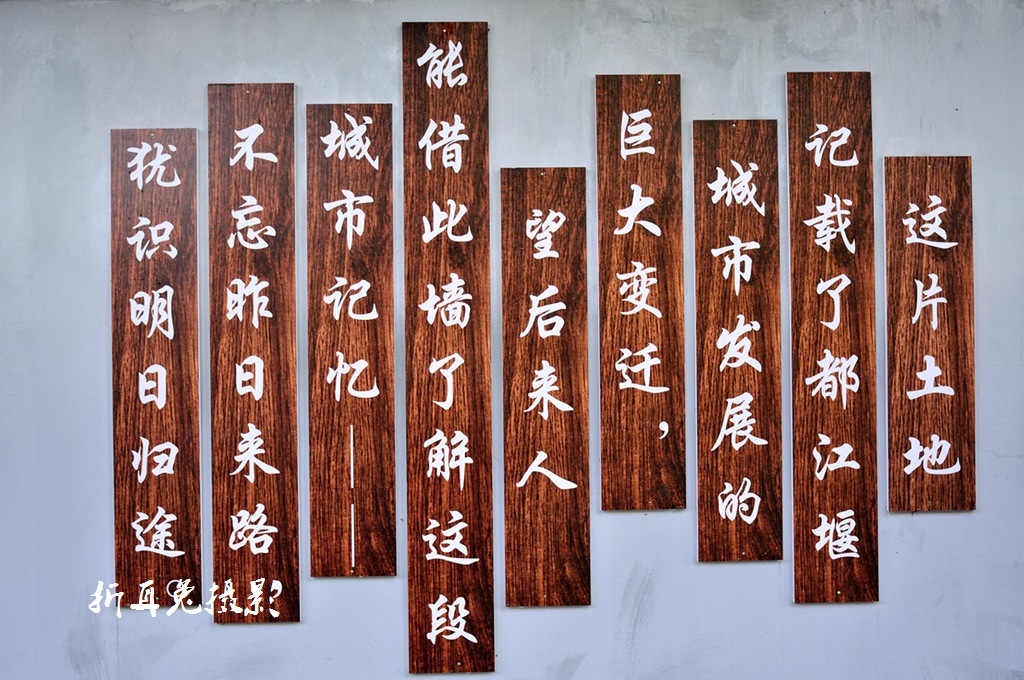 这片土地
记载了都江堰
城市发展的
巨大变迁，
望后来人
能借此墙了解这段
城市记忆——
不忘昨日来路
犹识明日归途
折耳兔摄影